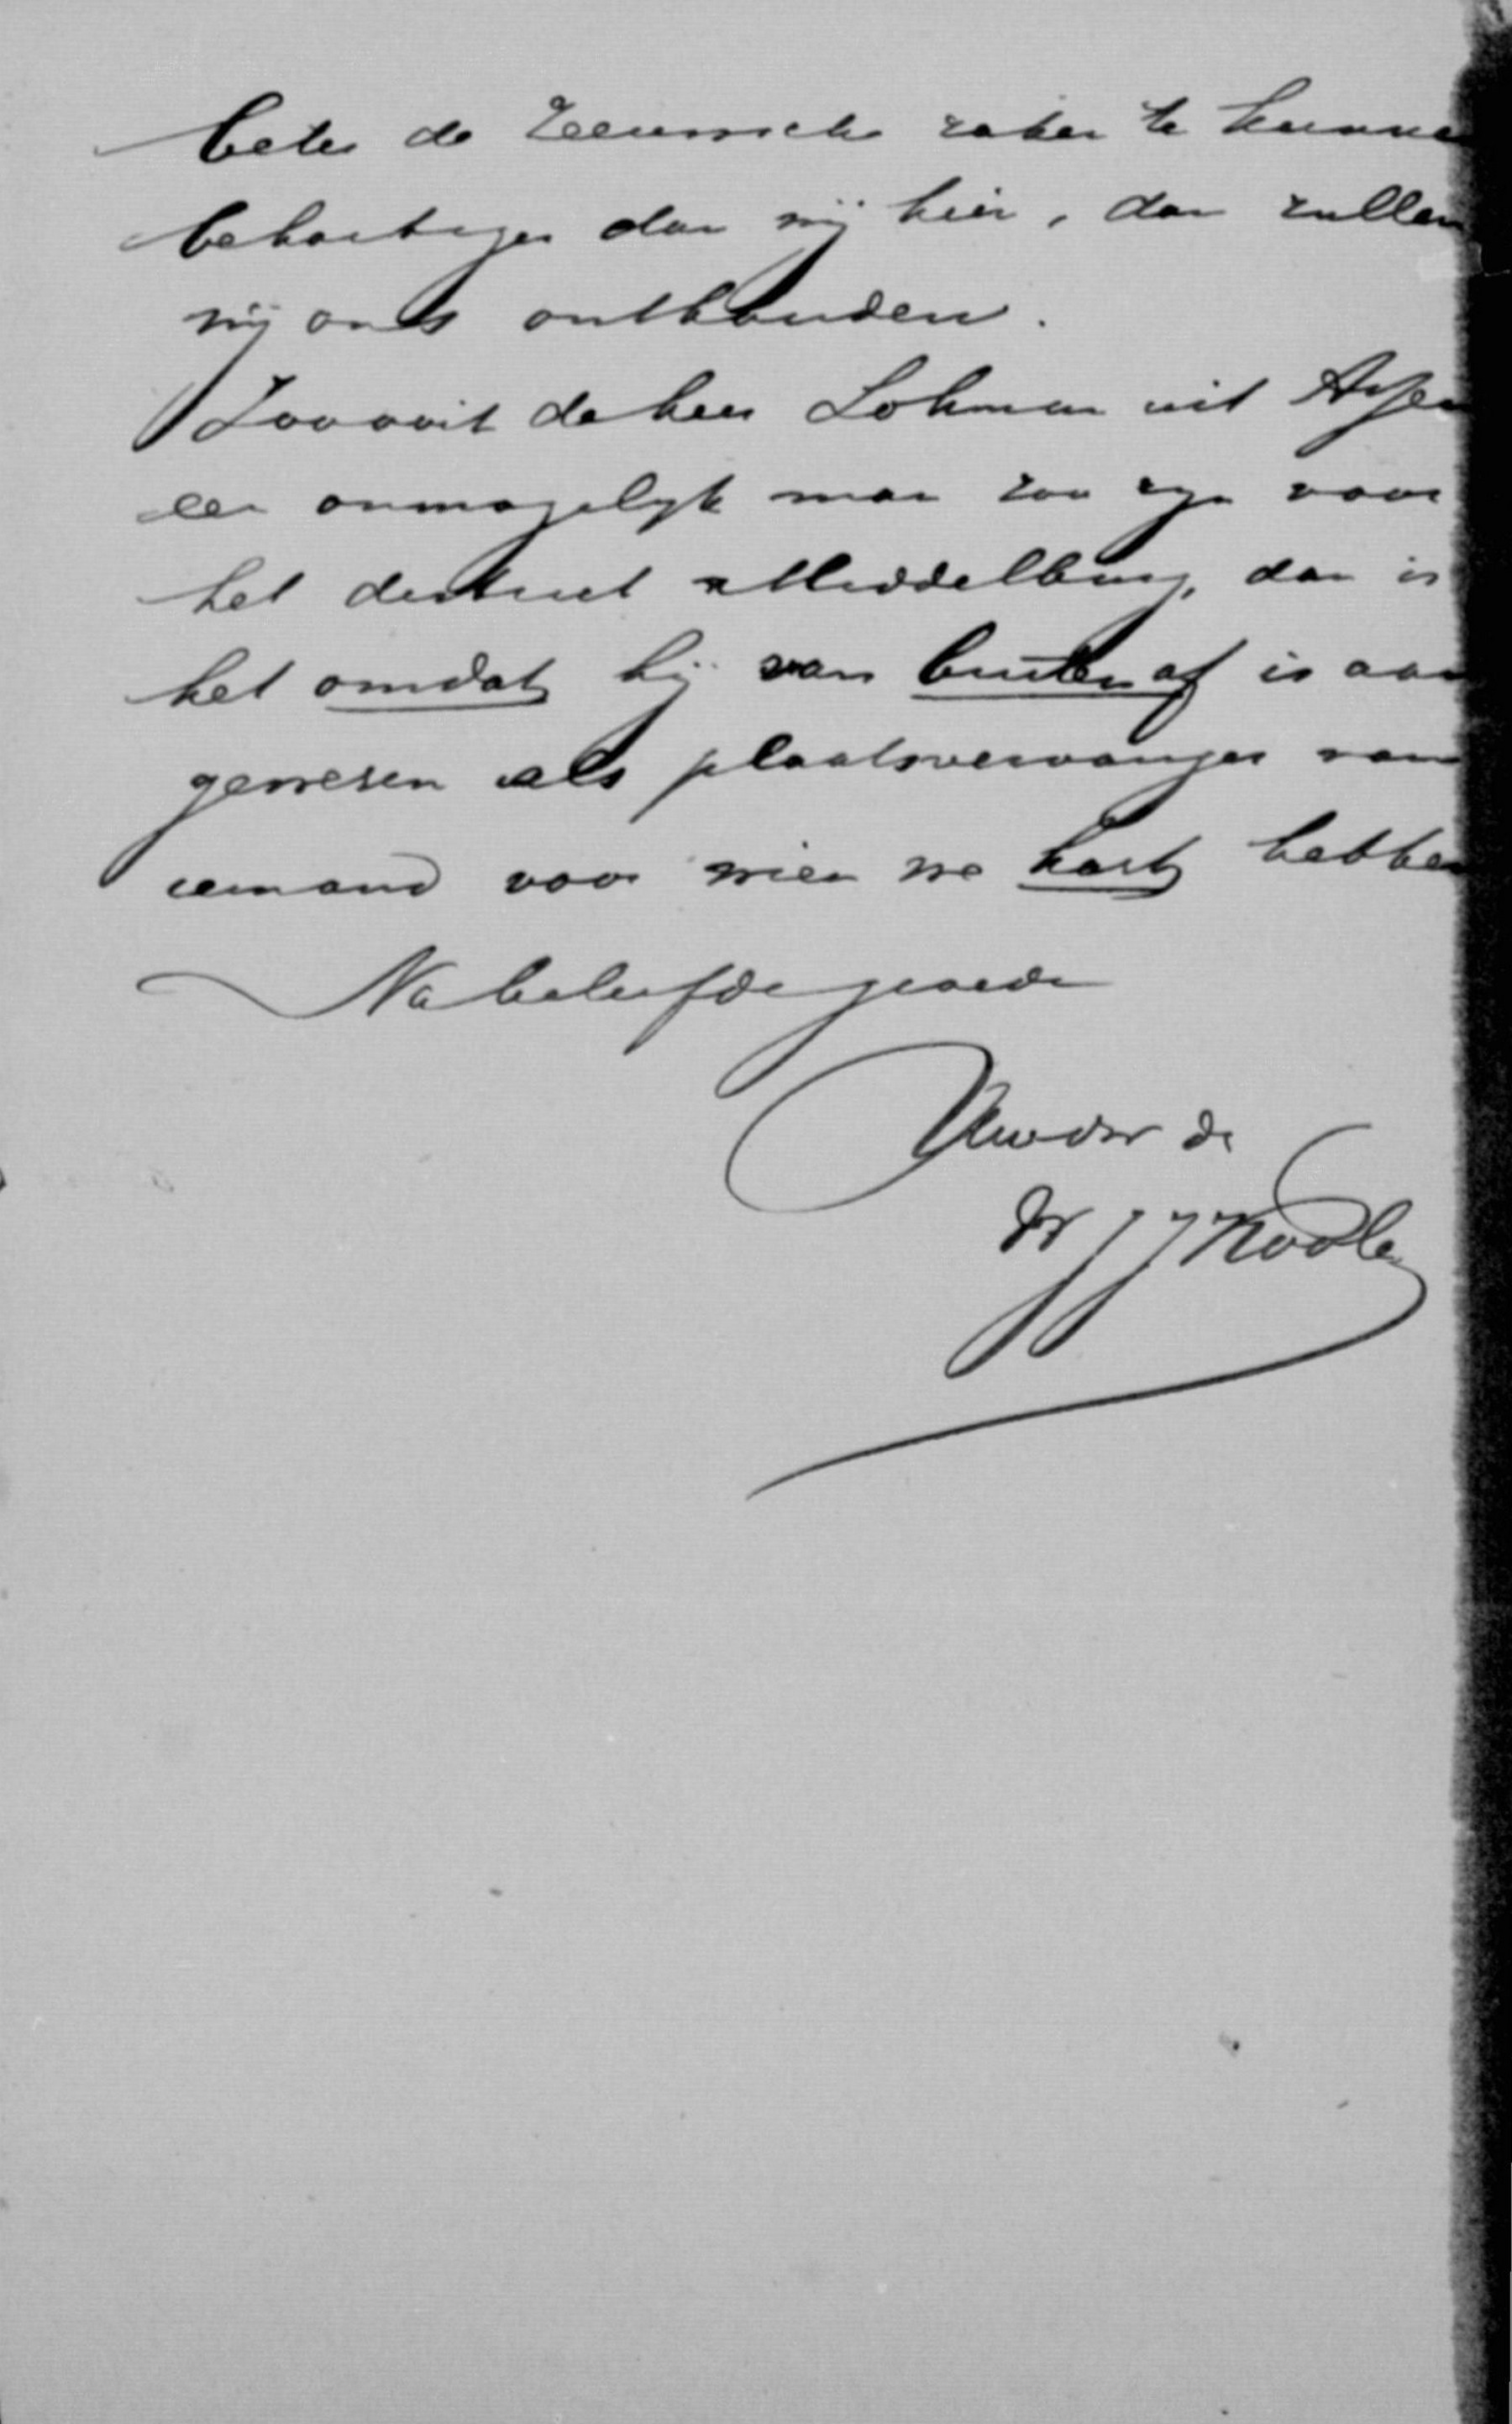 beter de Zeeuwsche zaken te kunne
behartigen dan wij hier, dan zullen
wij ons onthouden.
Zoo ooit de heer Lohman uit
een onmogelijk man zou zijn voor
het district Middelburg, dan is
het omdat hij van buiten af is aan
gewezen als plaatsvervanger van
iemand voor wien we hart hebben
Na beleefde groete
Uw dw dr
Dr J J Koole